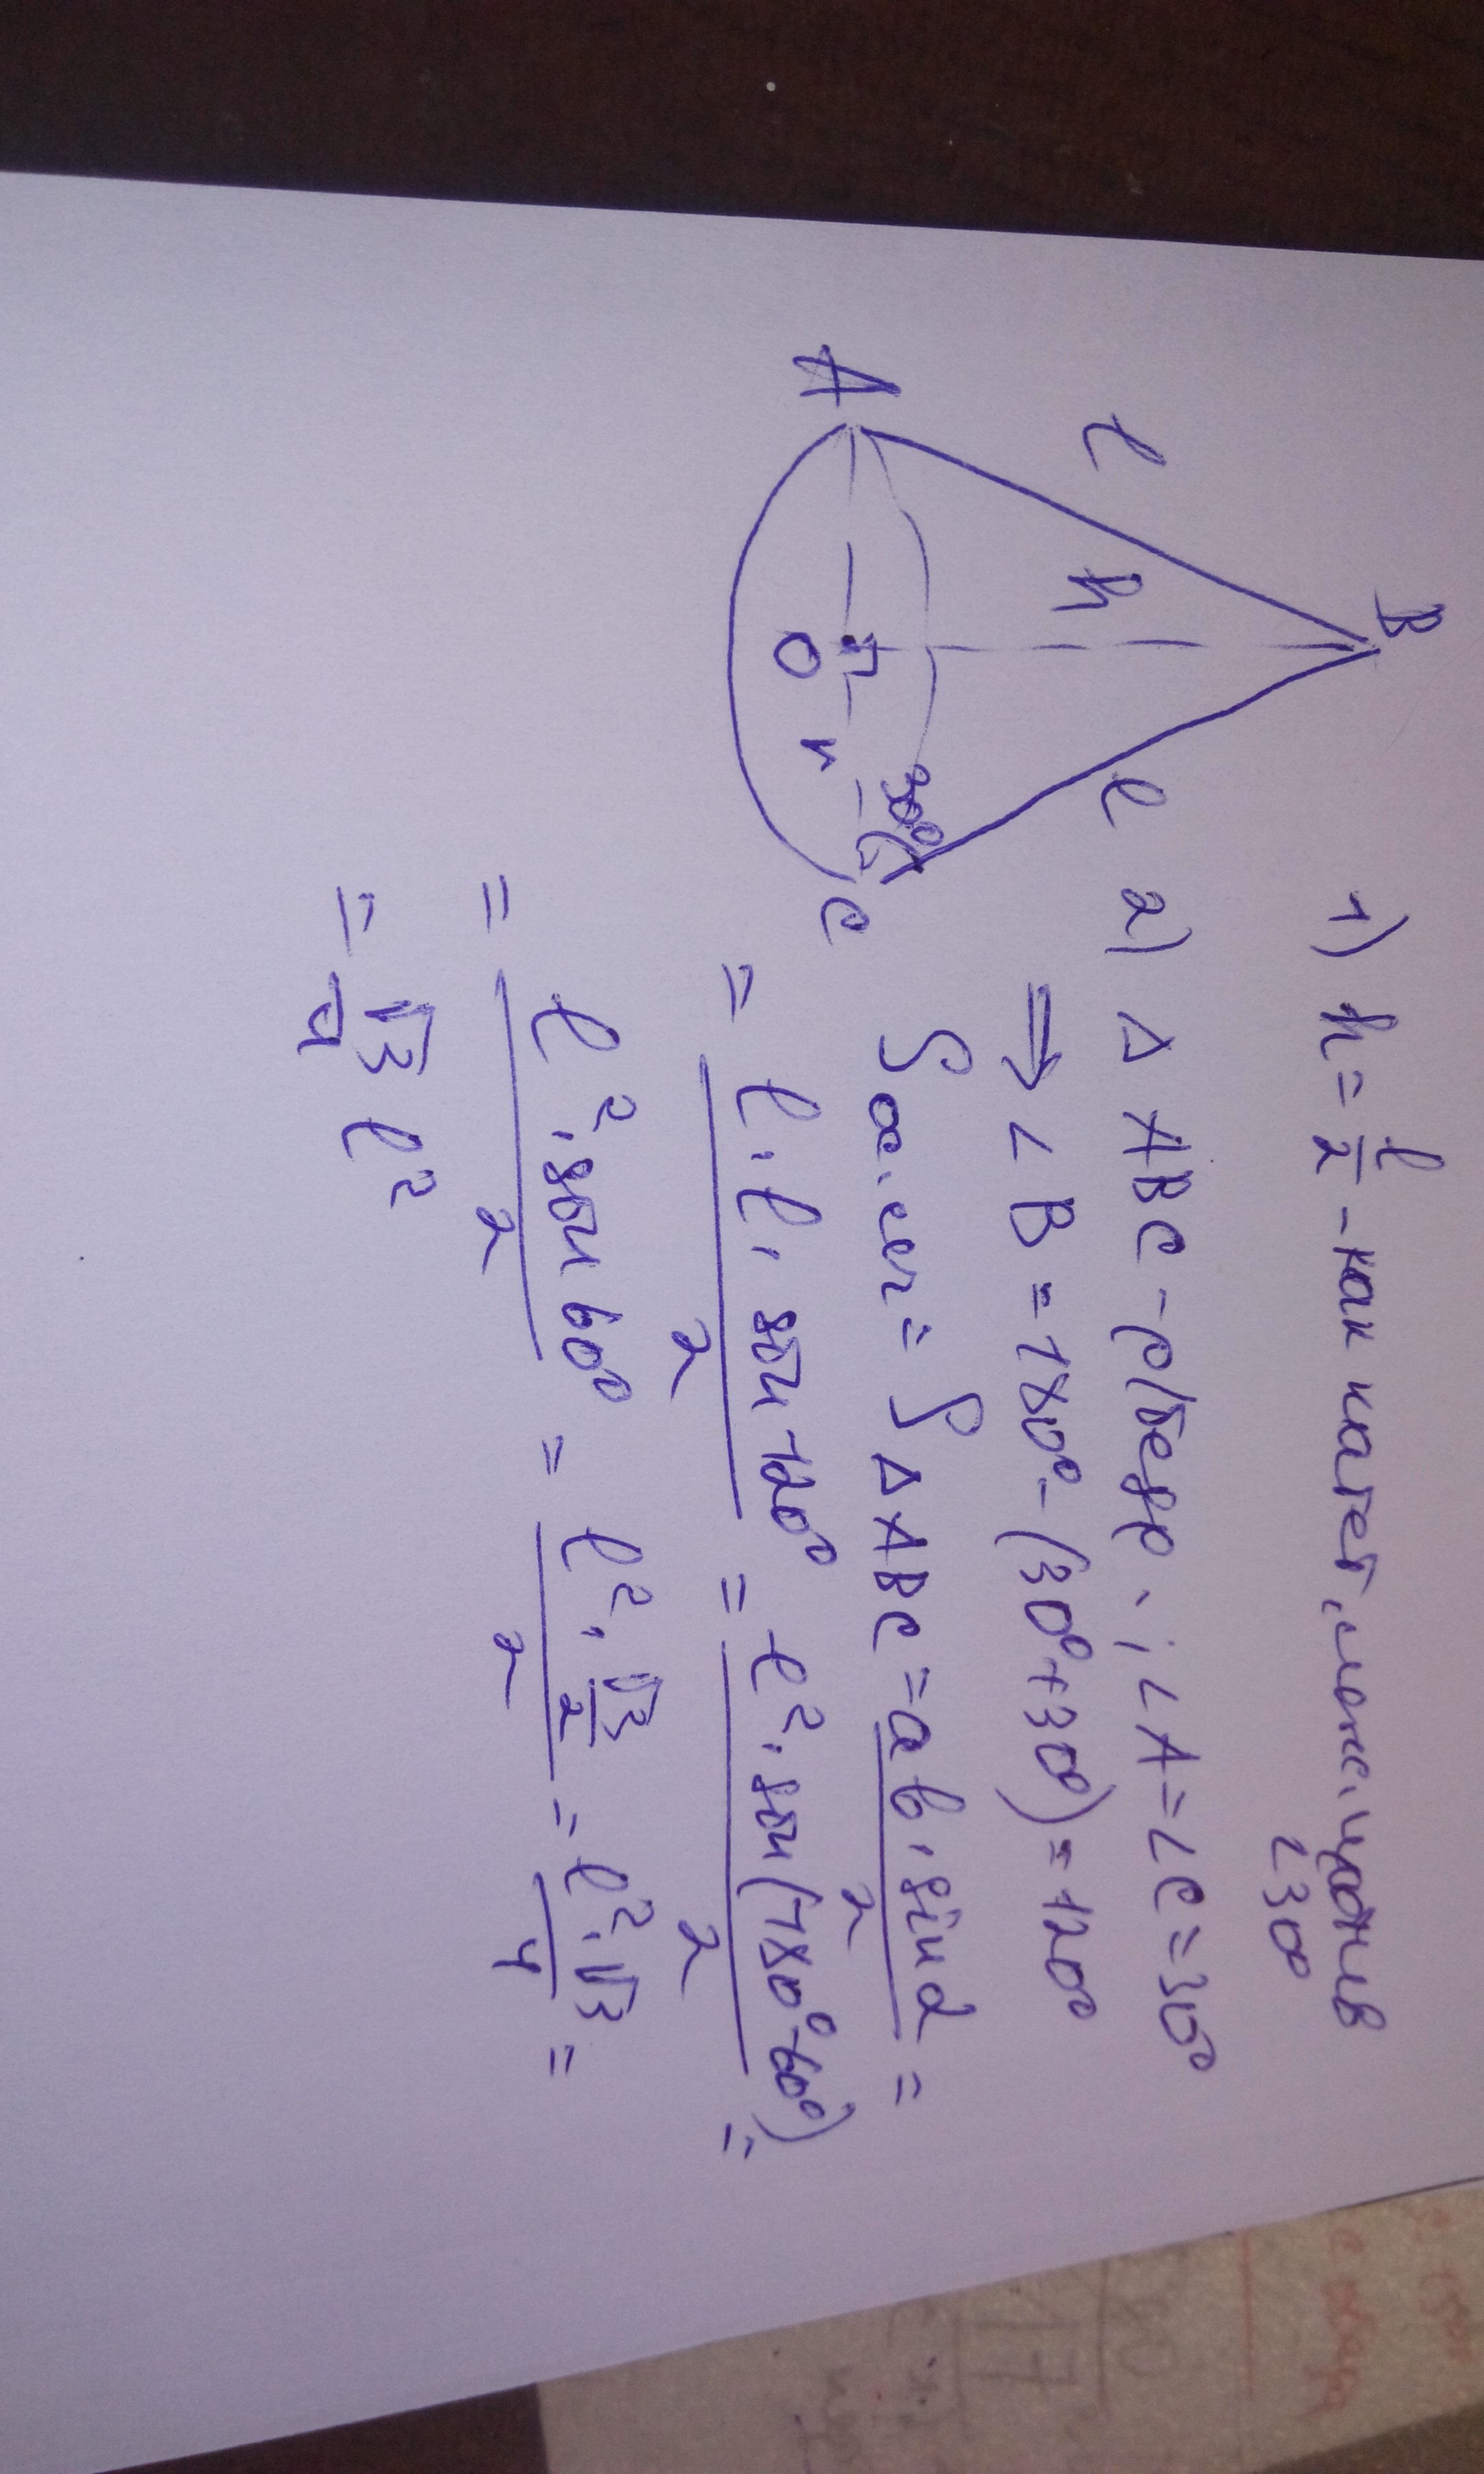 B
l
h
l
A
O
r
30°
C
1) h = l/2 - как катет, леж. против
∠30°
2) Δ ABC - р/бедр.; ∠A = ∠C = 30°
⇒ ∠B = 180° - (30° + 30°) = 120°
S ос. сеч = S Δ ABC = ab · sin α / 2 =
= l · l · sin 120° / 2 = l² · sin (180° - 60°) / 2 =
= l² · sin 60° / 2 = l² · √3/2 / 2 = l² · √3 / 4 =
= √3/4 l²
17